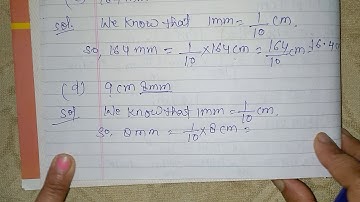 Sol. We know that 1mm = 1/10 cm.
So, 164 mm = 1/10 × 164 cm = 164/10 cm = 16.40
(d) 9 cm 8mm
Sol. We know that 1mm = 1/10 cm.
So. 8 mm = 1/10 × 8 cm =